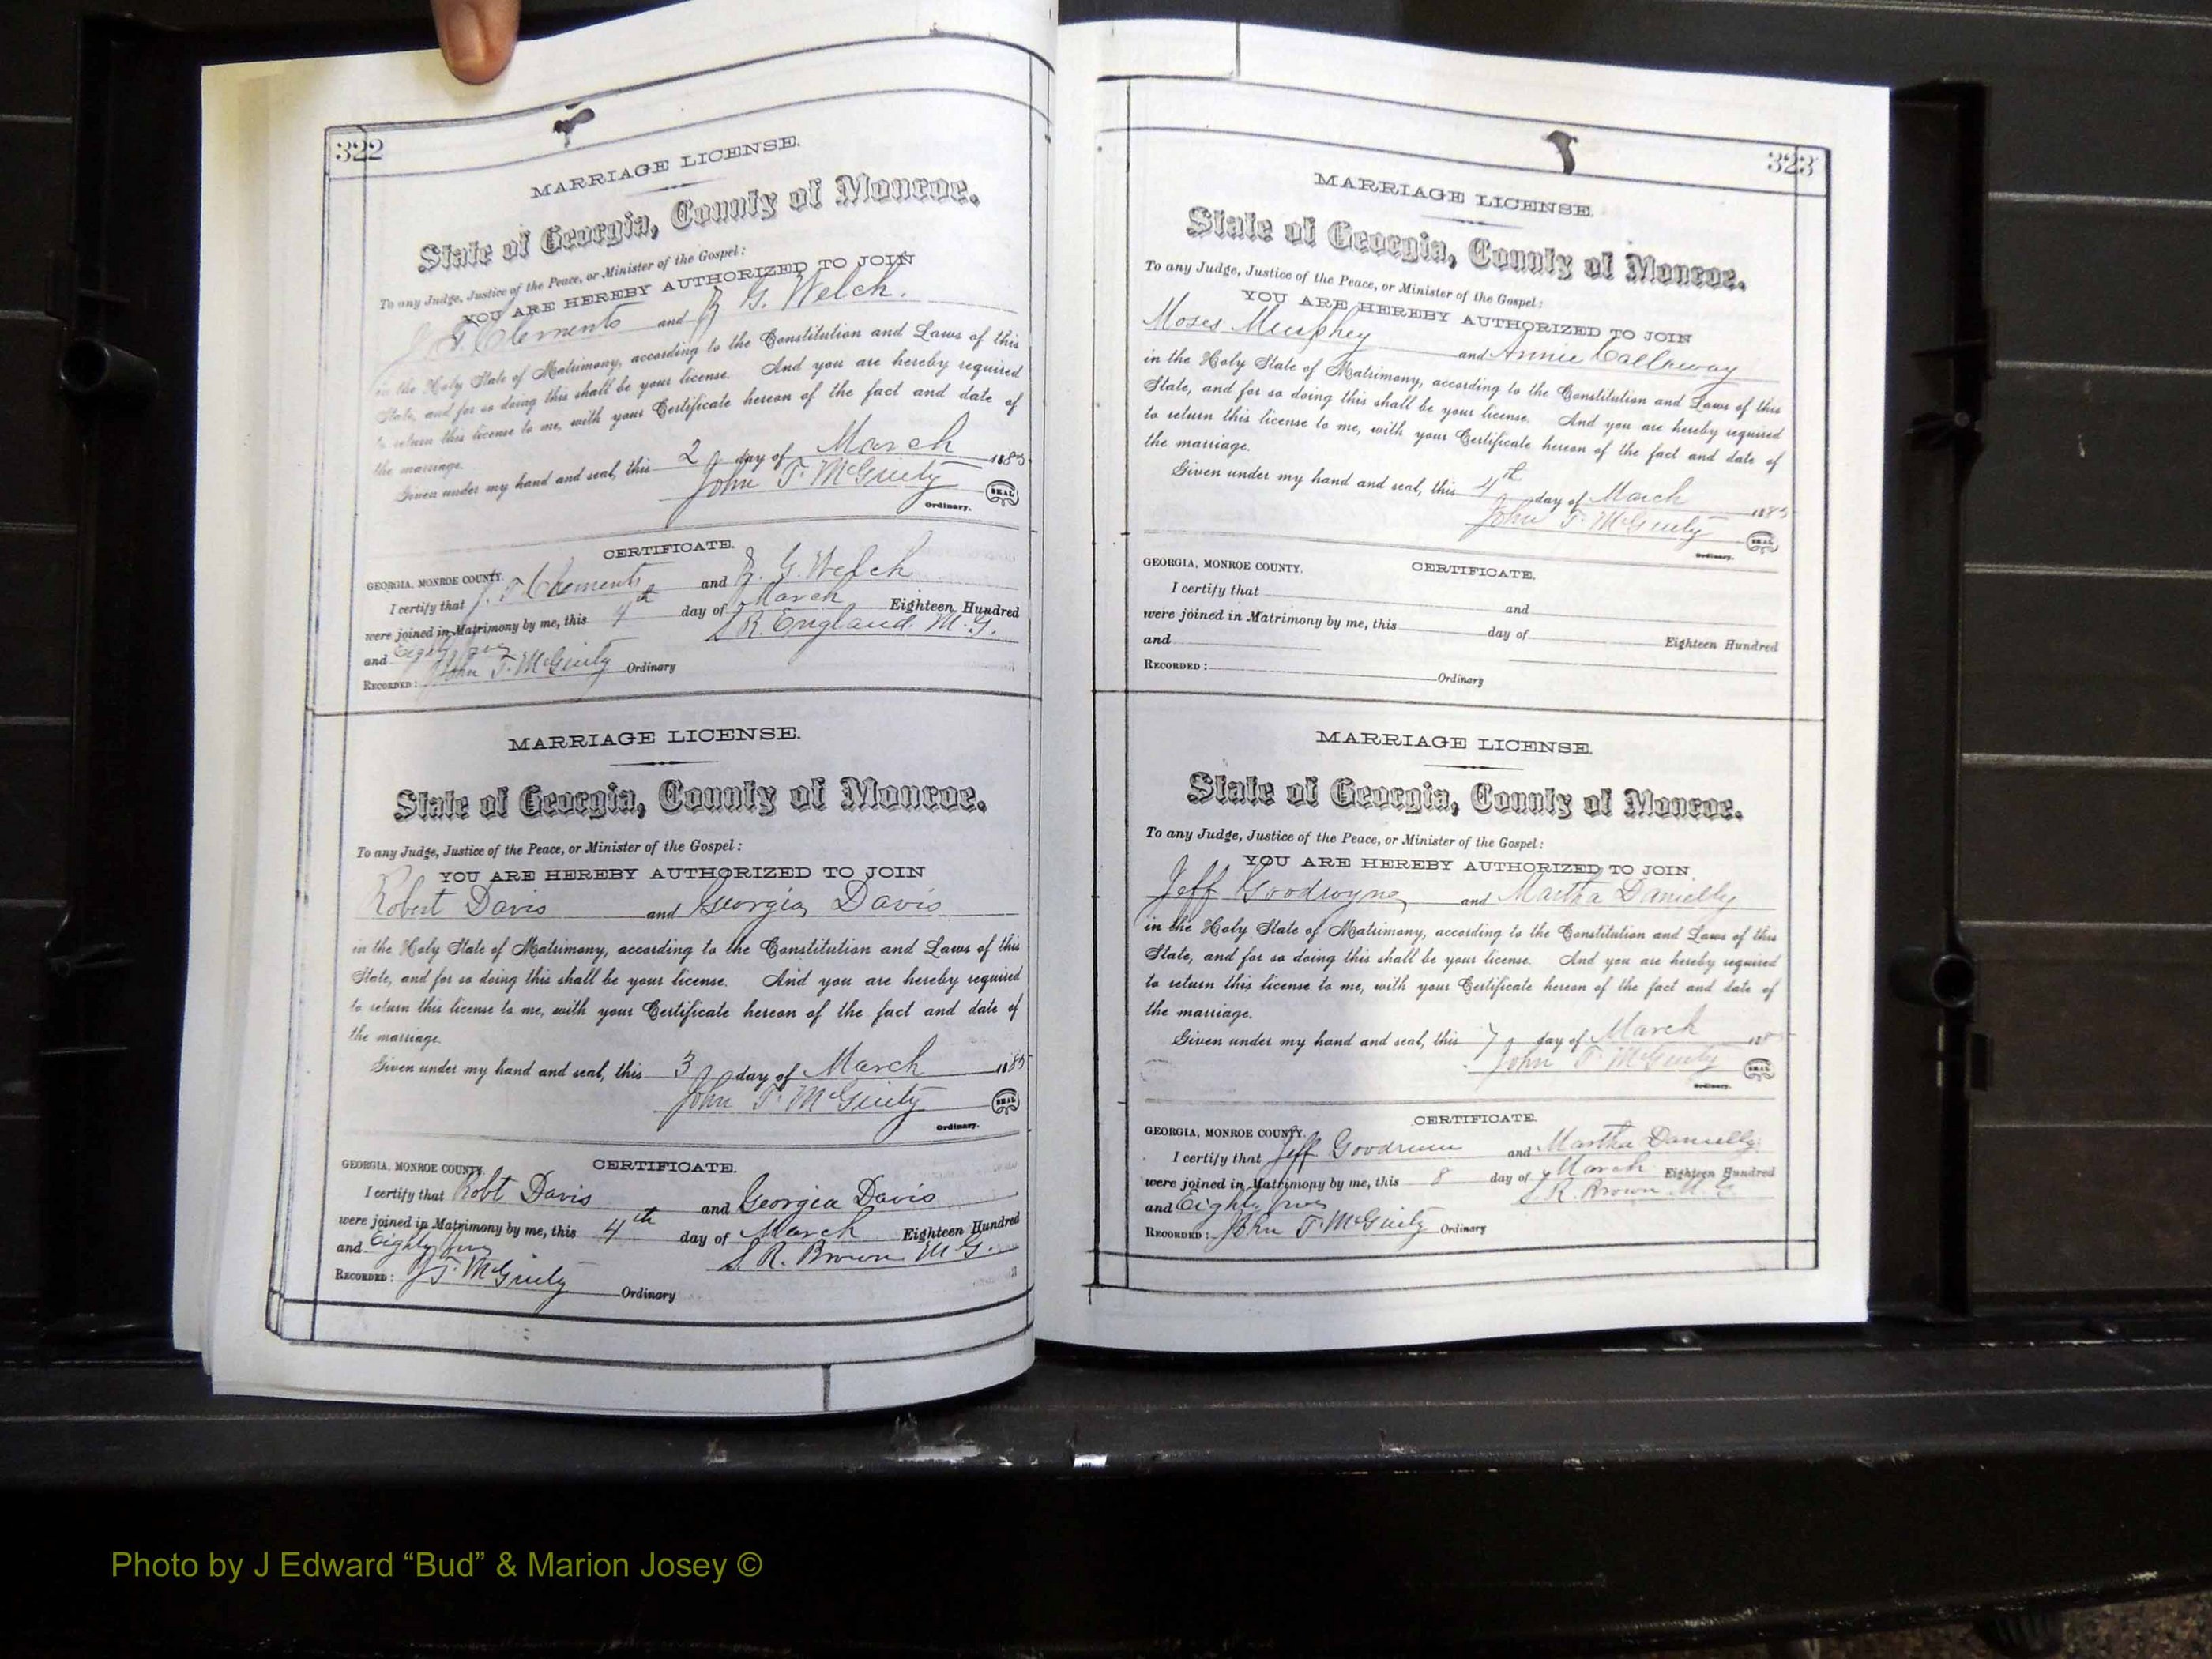 322
MARRIAGE LICENSE.
State of Georgia, County of Monroe.
To any Judge, Justice of the Peace, or Minister of the Gospel:
YOU ARE HEREBY AUTHORIZED TO JOIN
J. T. Clements and G. Welch.
in the Holy State of Matrimony, according to the Constitution and Laws of this
State, and for so doing this shall be your license. And you are hereby required
to return this license to me, with your Certificate hereon of the fact and date of
the marriage.
Given under my hand and seal, this 2 day of March 1885
John T. McGinty SEAL
Ordinary.
CERTIFICATE.
GEORGIA, MONROE COUNTY.
I certify that J. T. Clements and G. Welch
were joined in Matrimony by me, this 4th day of March Eighteen Hundred
and Eighty five S. R. England M. G.
RECORDED: John T. McGinty Ordinary
MARRIAGE LICENSE.
State of Georgia, County of Monroe.
To any Judge, Justice of the Peace, or Minister of the Gospel:
YOU ARE HEREBY AUTHORIZED TO JOIN
Robert Davis and Georgia Davis
in the Holy State of Matrimony, according to the Constitution and Laws of this
State, and for so doing this shall be your license. And you are hereby required
to return this license to me, with your Certificate hereon of the fact and date of
the marriage.
Given under my hand and seal, this 3 day of March 1885
John T. McGinty SEAL
Ordinary.
CERTIFICATE.
GEORGIA, MONROE COUNTY.
I certify that Robt Davis and Georgia Davis
were joined in Matrimony by me, this 4th day of March Eighteen Hundred
and Eighty five S. R. Brown M. G.
RECORDED: J. T. McGinty Ordinary
323
MARRIAGE LICENSE.
State of Georgia, County of Monroe.
To any Judge, Justice of the Peace, or Minister of the Gospel:
YOU ARE HEREBY AUTHORIZED TO JOIN
Moses Murphey and Annie Calloway
in the Holy State of Matrimony, according to the Constitution and Laws of this
State, and for so doing this shall be your license. And you are hereby required
to return this license to me, with your Certificate hereon of the fact and date of
the marriage.
Given under my hand and seal, this 4th day of March 1885
John T. McGinty SEAL
Ordinary.
CERTIFICATE.
GEORGIA, MONROE COUNTY.
I certify that and
were joined in Matrimony by me, this day of Eighteen Hundred
and
RECORDED: Ordinary
MARRIAGE LICENSE.
State of Georgia, County of Monroe.
To any Judge, Justice of the Peace, or Minister of the Gospel:
YOU ARE HEREBY AUTHORIZED TO JOIN
Jeff Goodwyne and Martha Danielly
in the Holy State of Matrimony, according to the Constitution and Laws of this
State, and for so doing this shall be your license. And you are hereby required
to return this license to me, with your Certificate hereon of the fact and date of
the marriage.
Given under my hand and seal, this 7 day of March 188
John T. McGinty SEAL
Ordinary.
CERTIFICATE.
GEORGIA, MONROE COUNTY.
I certify that Jeff and Martha Danielly
were joined in Matrimony by me, this 8 day of March Eighteen Hundred
and Eighty five S. R. Brown M. G.
RECORDED: John T. McGinty Ordinary
Photo by J Edward “Bud” & Marion Josey ©